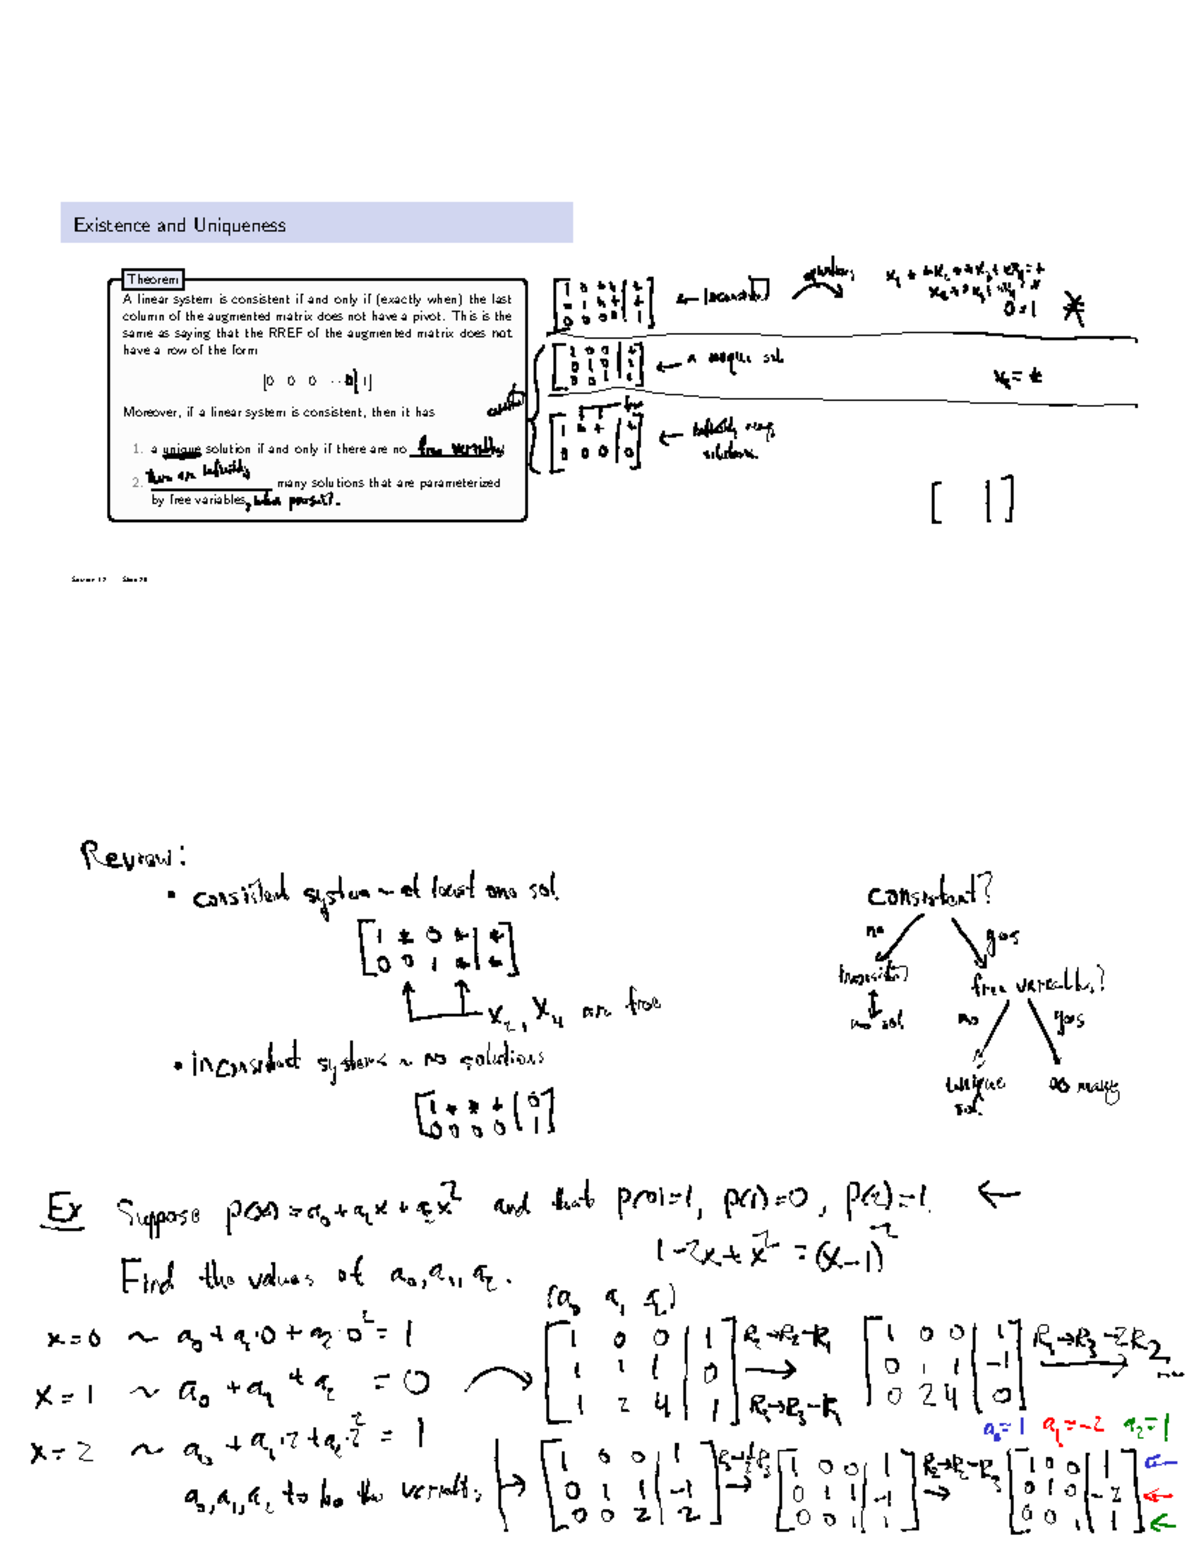 Existence and Uniqueness
Theorem
A linear system is consistent if and only if (exactly when) the last
column of the augmented matrix does not have a pivot. This is the
same as saying that the RREF of the augmented matrix does not
have a row of the form
[0 0 0 ⋯ 0 | 1]
Moreover, if a linear system is consistent, then it has
1. a unique solution if and only if there are no free variables
2. there are infinitely many solutions that are parameterized
by free variables, when present.
← Inconsistent
equations
0=1 *
← a unique sol
← infinitely many
solutions
free
[ | ]
Section 1.2 Slide 28
Review:
• consistent system ~ at least one sol
[1 * 0 * | *
0 0 1 * | *]
x₂, x₄ are free
• inconsistent systems ~ no solutions
[1 * * * | 0
0 0 0 0 | 1]
consistent?
no yes
inconsistent
no sol
free variables?
no yes
unique
sol
∞ many
Ex Suppose p(x) = a₀+a₁x+a₂x² and that p(0)=1, p(1)=0, p(2)=1. ←
1-2x+x² = (x-1)²
Find the values of a₀, a₁, a₂.
(a₀ a₁ a₂)
x=0 ~ a₀+a₁·0+a₂·0² = 1
x=1 ~ a₀+a₁+a₂ = 0
x=2 ~ a₀+a₁·2+a₂·2² = 1
a₀,a₁,a₂ to be the variables
[1 0 0 | 1
1 1 1 | 0
1 2 4 | 1]
R₂→R₂-R₁
R₃→R₃-R₁
[1 0 0 | 1
0 1 1 | -1
0 2 4 | 0]
R₃→R₃-2R₂
[1 0 0 | 1
0 1 1 | -1
0 0 2 | 2]
R₃→½R₃
[1 0 0 | 1
0 1 1 | -1
0 0 1 | 1]
R₂→R₂-R₃
a₀=1 a₁=-2 a₂=1
[1 0 0 | 1
0 1 0 | -2
0 0 1 | 1]